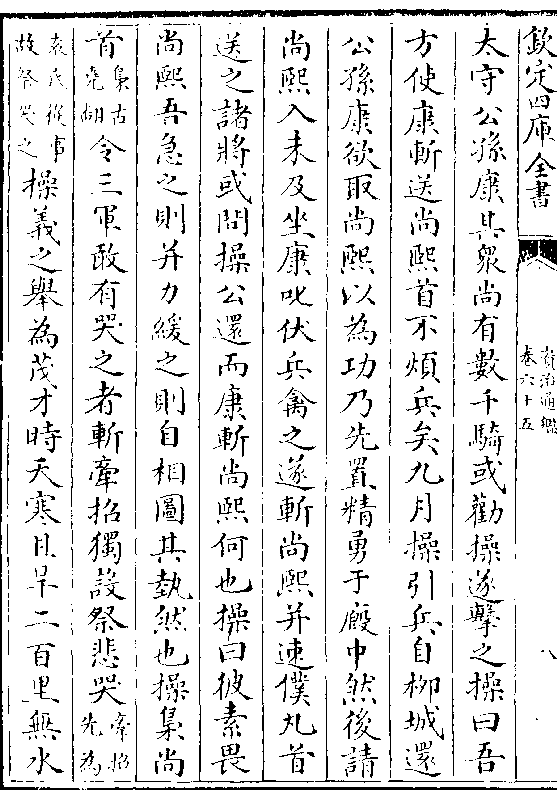 欽定四庫全書
資治通鑑
卷六十五
八
太守公孫康其衆尚有數千騎或勸操遂擊之操曰吾
方使康斬送尚熙首不煩兵矣九月操引兵自柳城還
公孫康欲取尚熙以為功乃先置精勇于廐中然後請
尚熙入未及坐康叱伏兵禽之遂斬尚熙并速僕丸首
送之諸將或問操公還而康斬尚熙何也操曰彼素畏
尚熙吾急之則并力緩之則自相圖其埶然也操梟尚
首梟古堯翻令三軍敢有哭之者斬牽招獨設祭悲哭牽招先為
袁氏從事故祭哭之操義之舉為茂才時天寒且旱二百里無水